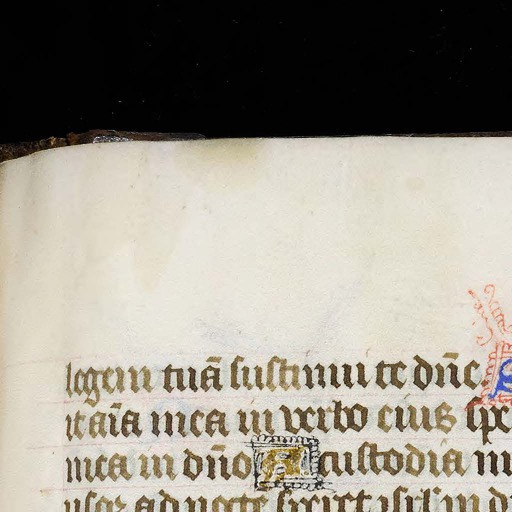 legem tuā sustinui te dn̄e S
it aīa mea in verbo eius spe
mea in dn̄o A custodia m
usqꝫ ad noctē speret isrl̄ in d